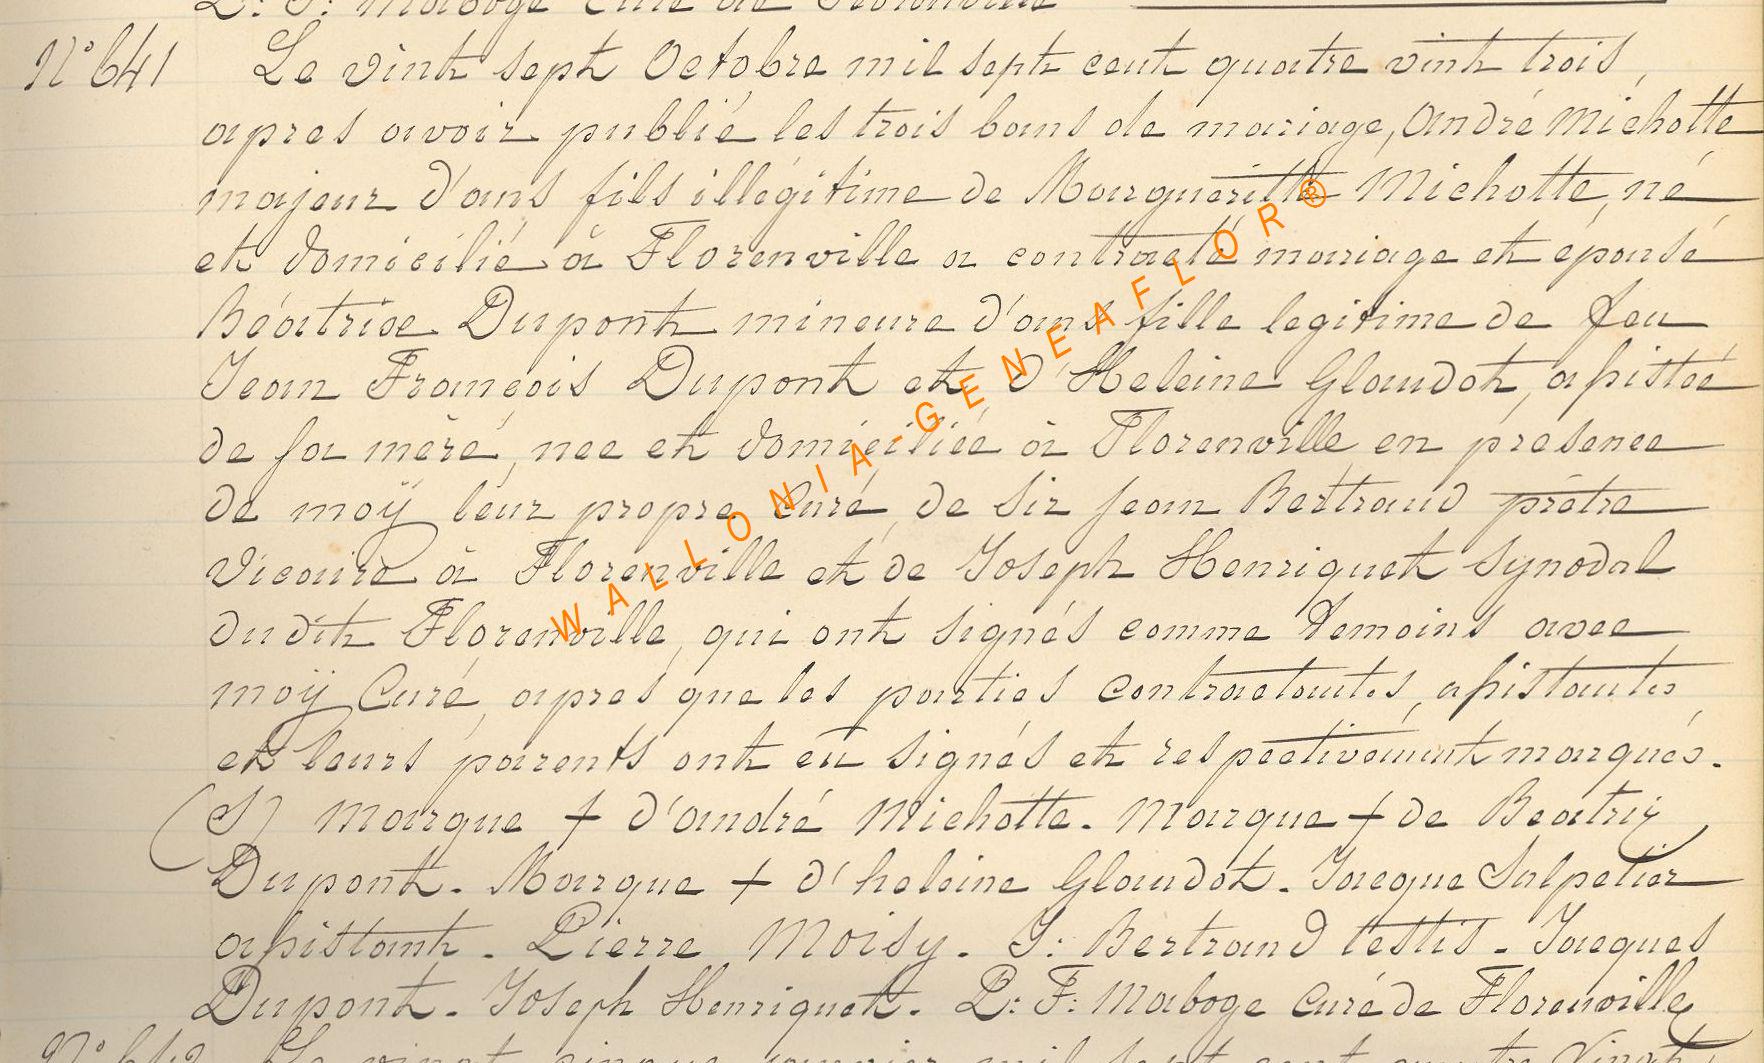 L: F: Maboge Curé de Florenville
N° 641 Le vint sept Octobre mil sept cent quatre vint trois,
apres avoir publié les trois bans de mariage, André Michotte
majeur d'ans fils illégitime de Margueritte Michotte, né
et domicilié à Florenville a contracté mariage et épousé
Béatrixe Dupont mineure d'ans fille legitime de feu
Jean François Dupont et d'Heleine Glaudot, assistée
de sa mère, nee et domiciliée à Florenville en présence
de moÿ leur propre Curé, de Sir Jean Bertrand prêtre
Vicaire à Florenville et de Joseph Henriquet Synodal
du dit Florenville, qui ont signés comme temoins avec
moÿ Curé, apres que les parties contractantes, assistantes
et leurs parents ont eû signés et respectivement marqués.
(S) Marque + d'andré Michotte. Marque + de Beatrix
Dupont. Marque + d'heleine Glaudot. Jacque Salpetier
assistant. Pierre Moisy. J: Bertrand testis. Jacques
Dupont. Joseph Henriquet. L: F: Maboge Curé de Florenville
N° 642 Le vingt cinque janvier mil sept cent quatre vingt
WALLONIA-GENEAFLOR®